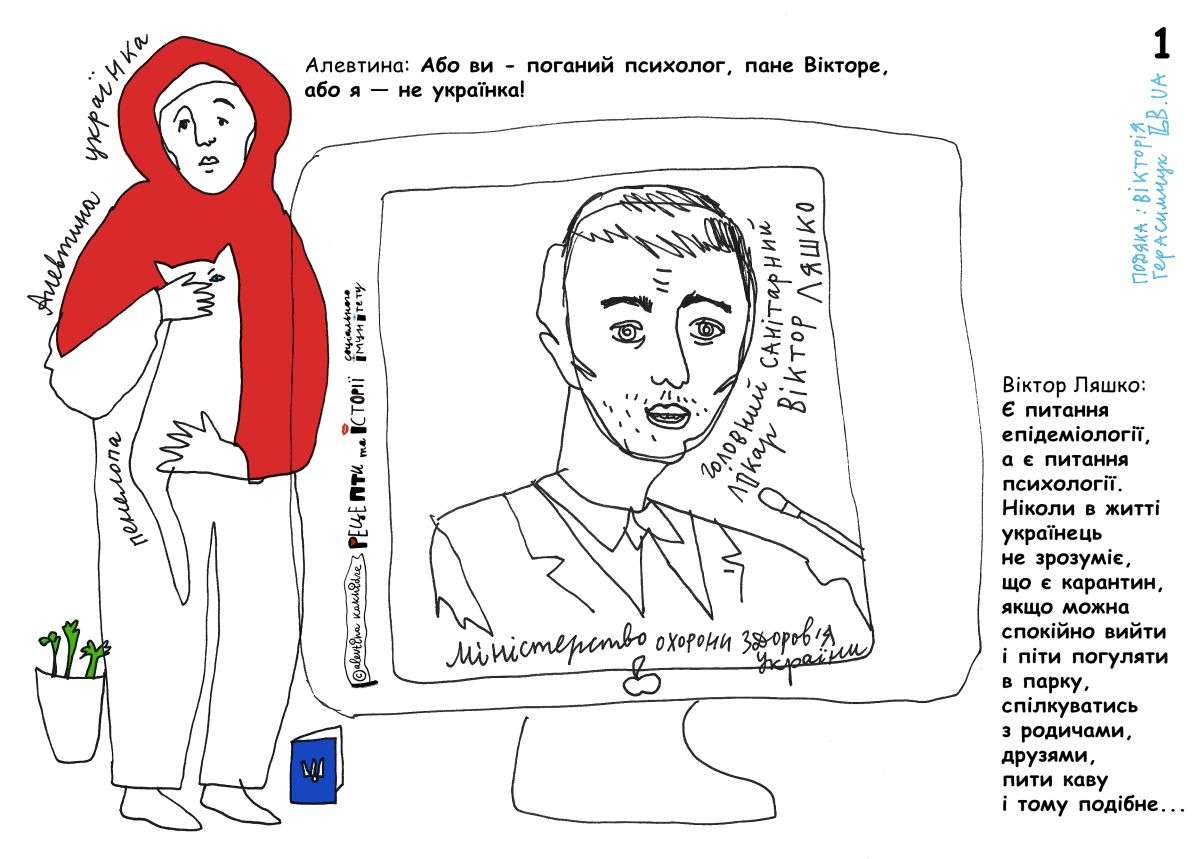 1
Алевтина: Або ви - поганий психолог, пане Вікторе,
або я — не українка!
Алевтина українка
пенелопа
©alevtina kakhidze
Рецепти та історії
соціального
імунітету
головний санітарний
лікар Віктор Ляшко
Міністерство охорони здоров'я
України
подяка: Вікторія
Герасимчук LB.UA
Віктор Ляшко:
Є питання
епідеміології,
а є питання
психології.
Ніколи в житті
українець
не зрозуміє,
що є карантин,
якщо можна
спокійно вийти
і піти погуляти
в парку,
спілкуватись
з родичами,
друзями,
пити каву
і тому подібне...